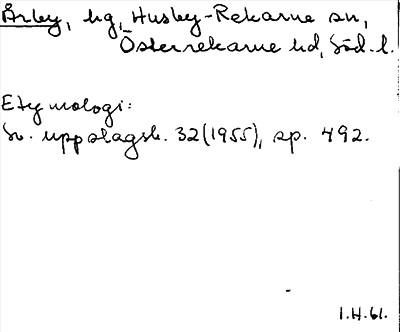 Årby, hg, Husby-Rekarne sn,
Österrekarne hd, Söd. l.
Etymologi:
Sv. uppslagsb. 32 (1955), sp. 492.
1.H.61.